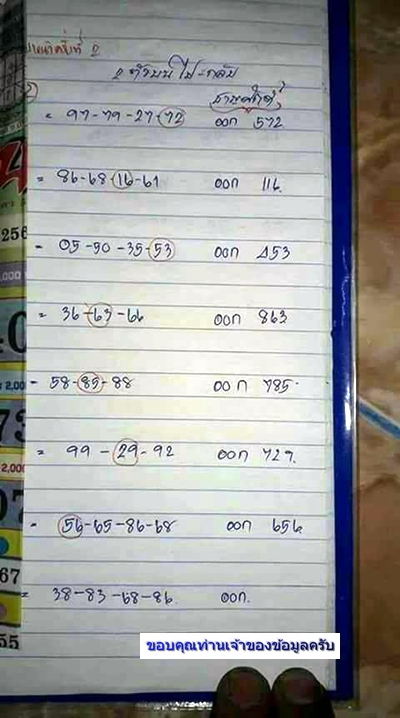 2 ตัวบน ไป-กลับ
= 97-79-27-72 ออก 572
= 86-68-16-61 ออก 116
= 05-50-35-53 ออก 453
= 36-63-66 ออก 863
- 58-85-88 ออก 785
= 99-29-92 ออก 729
- 56-65-86-68 ออก 656
= 38-83-68-86 ออก
ขอบคุณท่านเจ้าของข้อมูลครับ
256
2,00
73
2,000
67
55